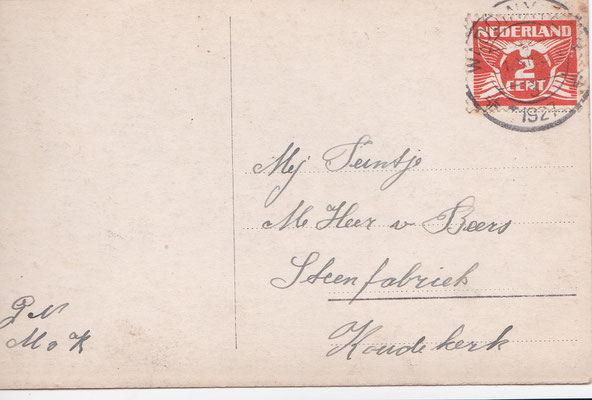 NEDERLAND
2
CENT
1927
Mej Teuntje
M Heer v Beers
Steenfabriek
Koudekerk
P N
M v K